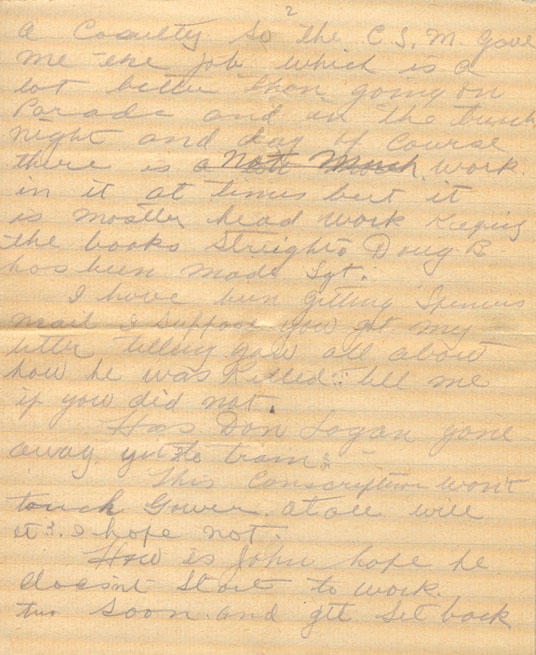 2
a Casulty so the C.S.M. gave
me the job which is a
lot better than going on
Parade and in the trench
night and day of course
there is a not much work
in it at times but it
is mostler head work Keeping
the books streight Doug B
has been made Sgt.
I have been getting Spencers
mail I suppose you got my
letter telling you all about
how he was Killed tell me
if you did not.
Has Don Logan gone
away yet to train
This Conscription won't
touch Gower atall will
it? I hope not.
How is John hope he
doesnt start to work
two soon and get set back